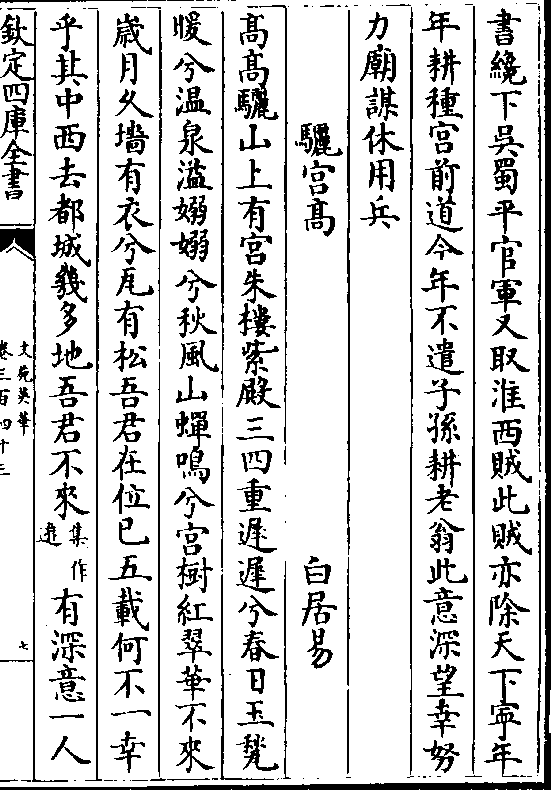 書纔下吳蜀平官軍又取淮西賊此賊亦除天下寕年
年耕種宫前道今年不遣子孫耕老翁此意深望幸努
力廟謀休用兵
驪宫髙 白居易
髙髙驪山上有宫朱樓紫殿三四重遲遲兮春日玉甃
暖兮温泉溢嫋嫋兮秋風山蟬鳴兮宫樹紅翠華不來
歳月久墻有衣兮瓦有松吾君在位已五載何不一幸
乎其中西去都城幾多地吾君不來集作遊有深意一人
欽定四庫全書
文苑英華
卷三百四十三
七